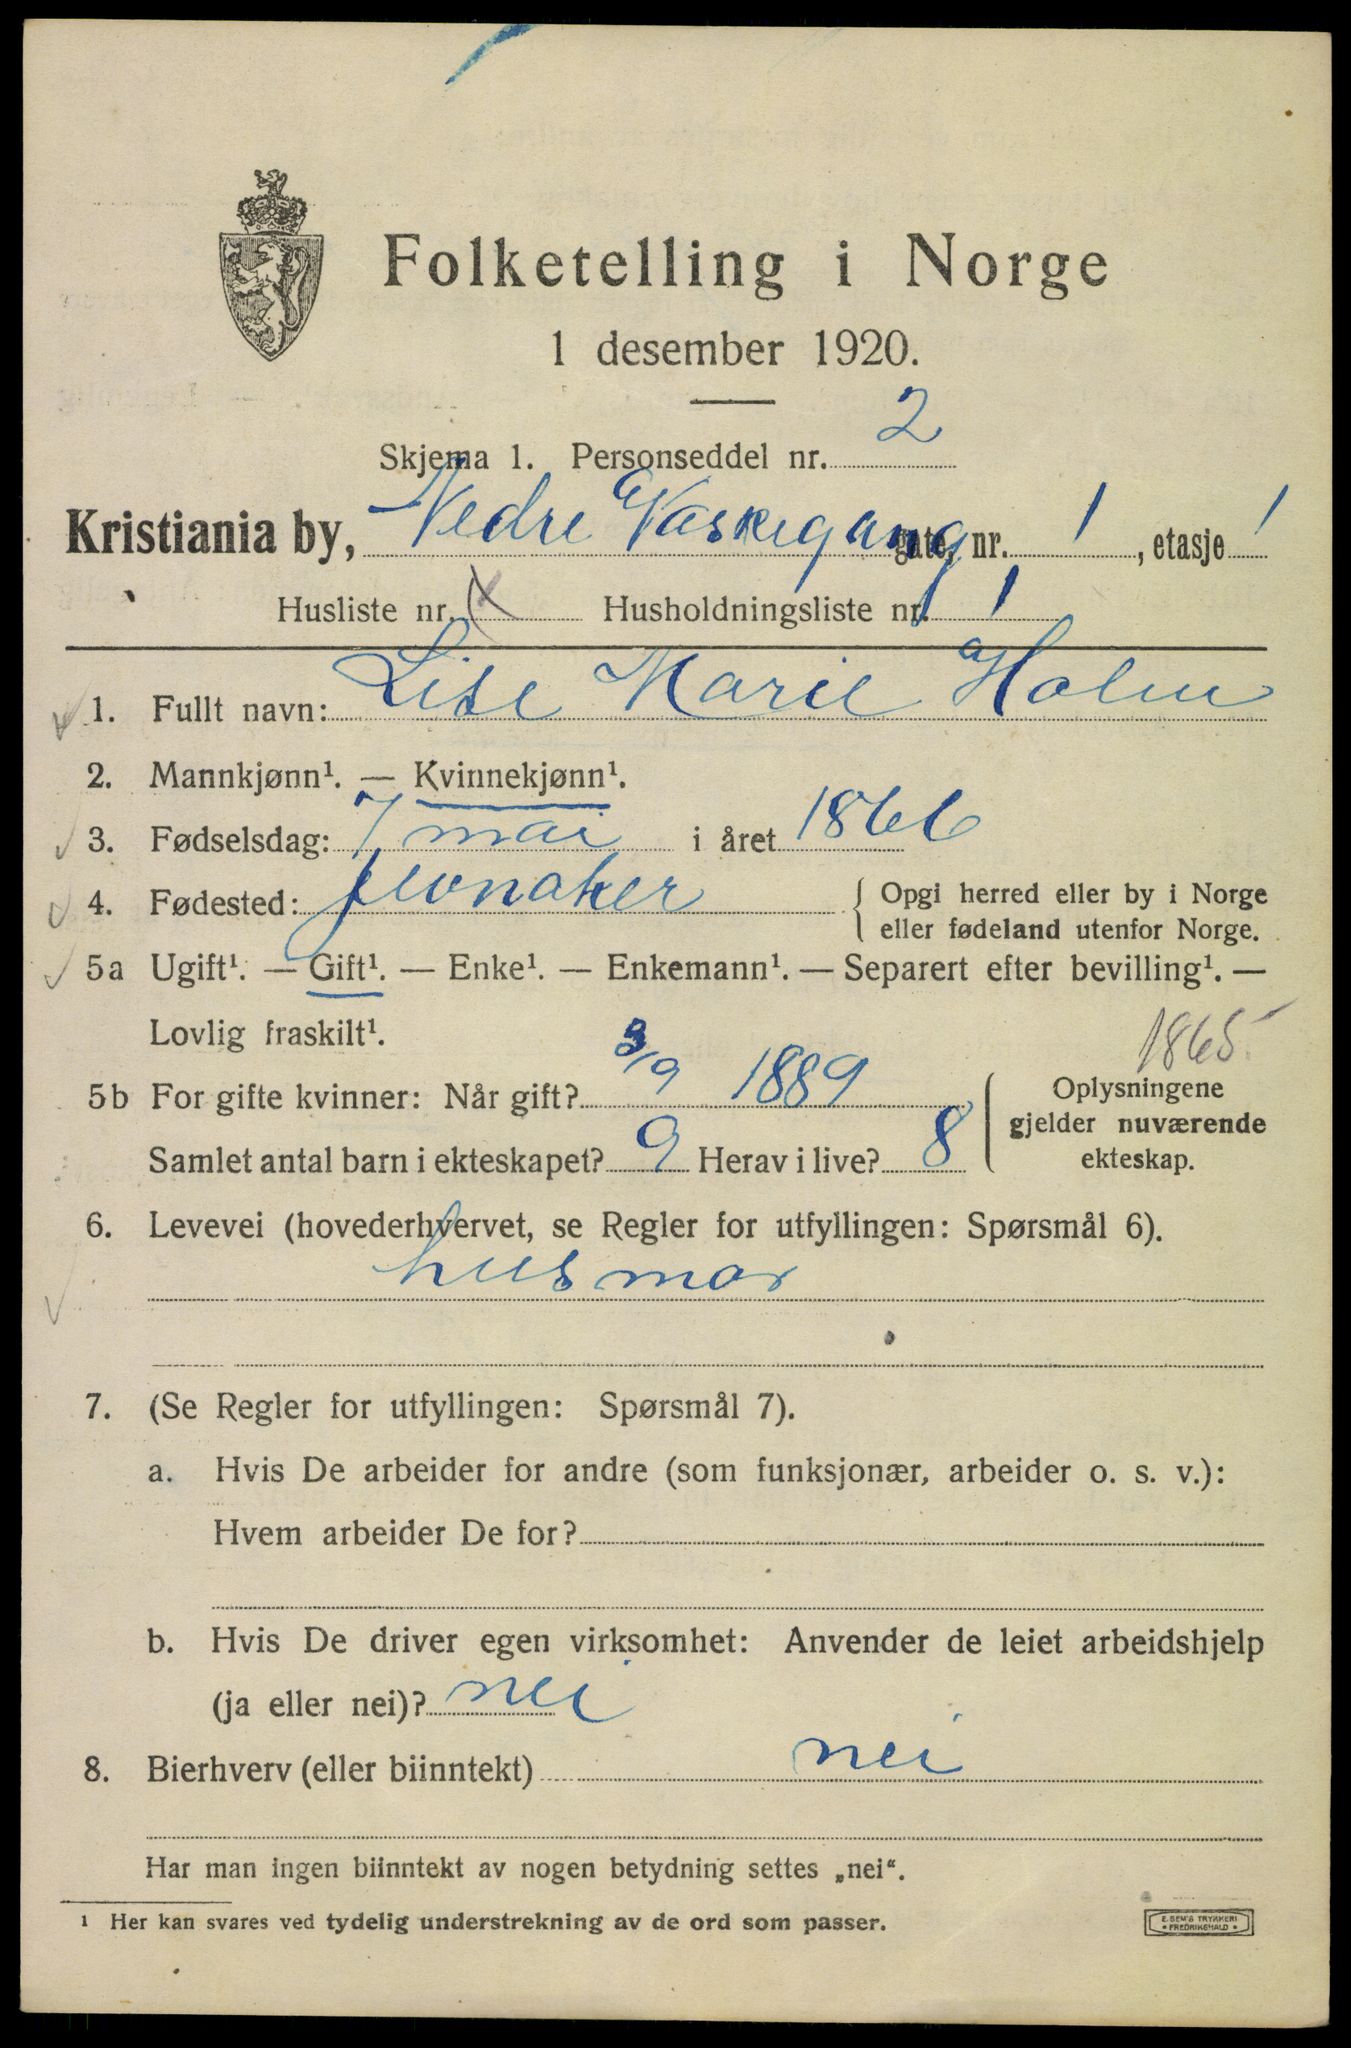 Folketelling i Norge
1 desember 1920.
Skjema 1. Personseddel nr. 2
Kristiania by, Nedre Vaskegang gate, nr. 1, etasje 1
Husliste nr. Husholdningsliste nr. 1
1. Fullt navn: Lise Marie Holm
2. Mannkjønn¹. — Kvinnekjønn¹.
3. Fødselsdag: 7 mai i året 1866
4. Fødested: Jevnaker { Opgi herred eller by i Norge
eller fødeland utenfor Norge.
5a Ugift¹. — Gift¹. — Enke¹. — Enkemann¹. — Separert efter bevilling¹. —
Lovlig fraskilt¹.
1865
5b For gifte kvinner: Når gift? 3/9 1889
Samlet antal barn i ekteskapet? 9 Herav i live? 8
Oplysningene
gjelder nuværende
ekteskap.
6. Levevei (hovederhvervet, se Regler for utfyllingen: Spørsmål 6).
husmor
7. (Se Regler for utfyllingen: Spørsmål 7).
a. Hvis De arbeider for andre (som funksjonær, arbeider o. s. v.):
Hvem arbeider De for?
b. Hvis De driver egen virksomhet: Anvender de leiet arbeidshjelp
(ja eller nei)? nei
8. Bierhverv (eller biinntekt) nei
Har man ingen biinntekt av nogen betydning settes „nei“.
¹ Her kan svares ved tydelig understrekning av de ord som passer.
E. SEM'S TRYKKERI
• FREDRIKSHALD •